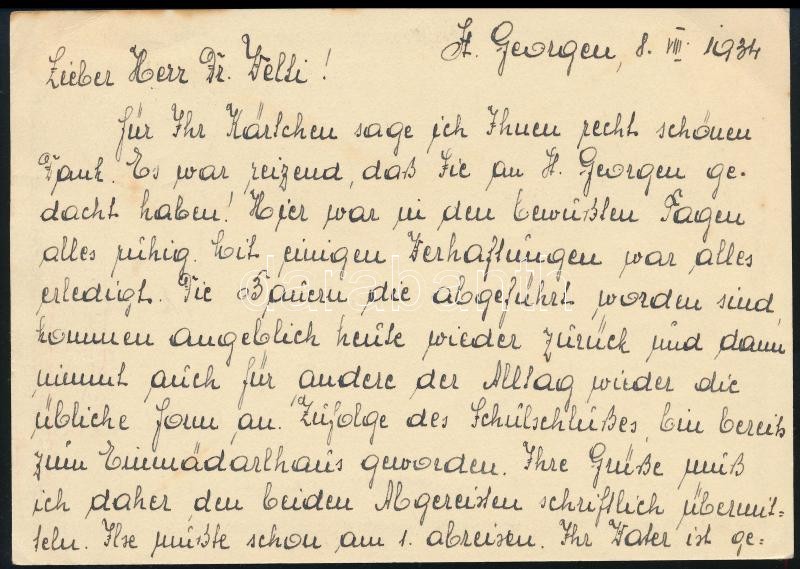 St. Georgen, 8. VIII. 1934
Lieber Herr Dr. Velti!
für Ihr Kärtchen sage ich Ihnen recht schönen
Dank. Es war reizend, daß Sie an St. Georgen ge-
dacht haben! Hier war in den bewußten Tagen
alles ruhig. Mit einigen Verhaftungen war alles
erledigt. Die Bauern die abgeführt worden sind,
kommen angeblich heute wieder zurück und dann
nimmt auch für andere der Alltag wieder die
übliche Form an. Zufolge des Schulschlußes, bin bereits
zum Einmäderlhaus geworden. Ihre Grüße muß
ich daher, den beiden Abgereisten schriftlich übermit=
teln. Ilse mußte schon am 1. abreisen. Ihr Vater ist ge=
darabanth